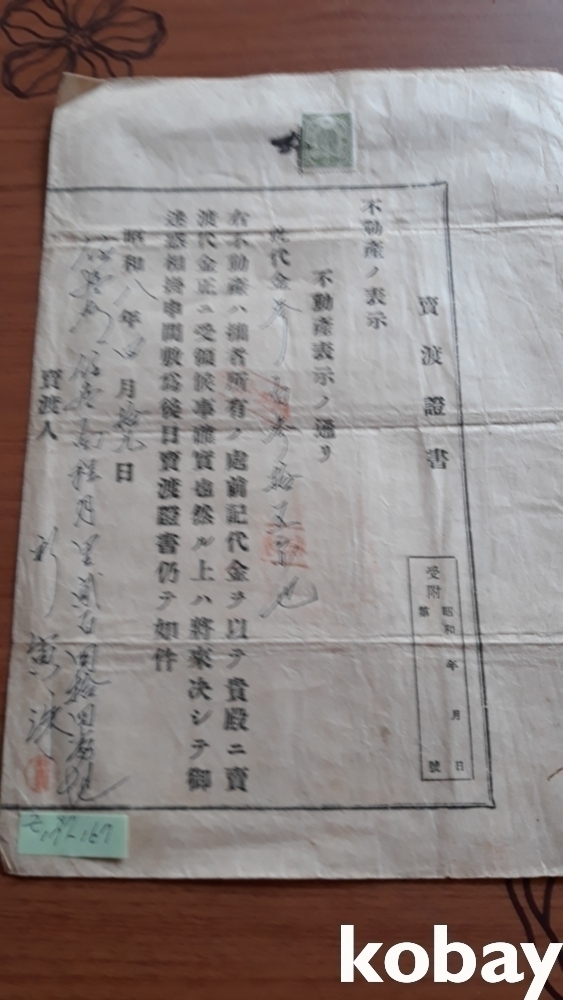 賣渡證書
受附
昭和 年 月 日
第 號
不動產ノ表示
不動產表示ノ通リ
此代金參百參拾五圓也
右不動產ハ拙者所有ノ處前記代金ヲ以テ貴殿ニ賣
渡代金正ニ受領候事確實也然ル上ハ將來決シテ御
迷惑相掛申間敷爲後日賣渡證書仍テ如件
昭和八年四月拾九日
月里貳百四拾四番地
賣渡人
kobay